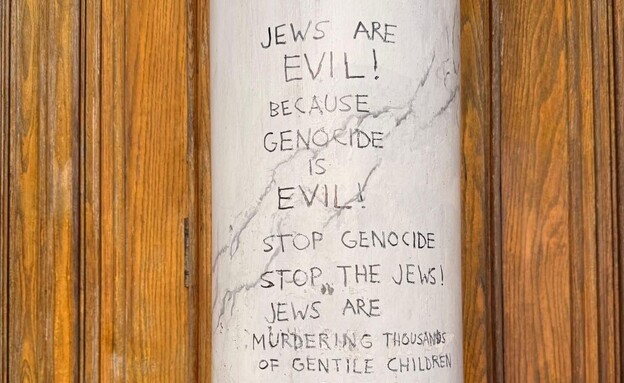 JEWS ARE
EVIL!
BECAUSE
GENOCIDE
IS
EVIL!
STOP GENOCIDE
STOP THE JEWS!
JEWS ARE
MURDERING THOUSANDS
OF GENTILE CHILDREN